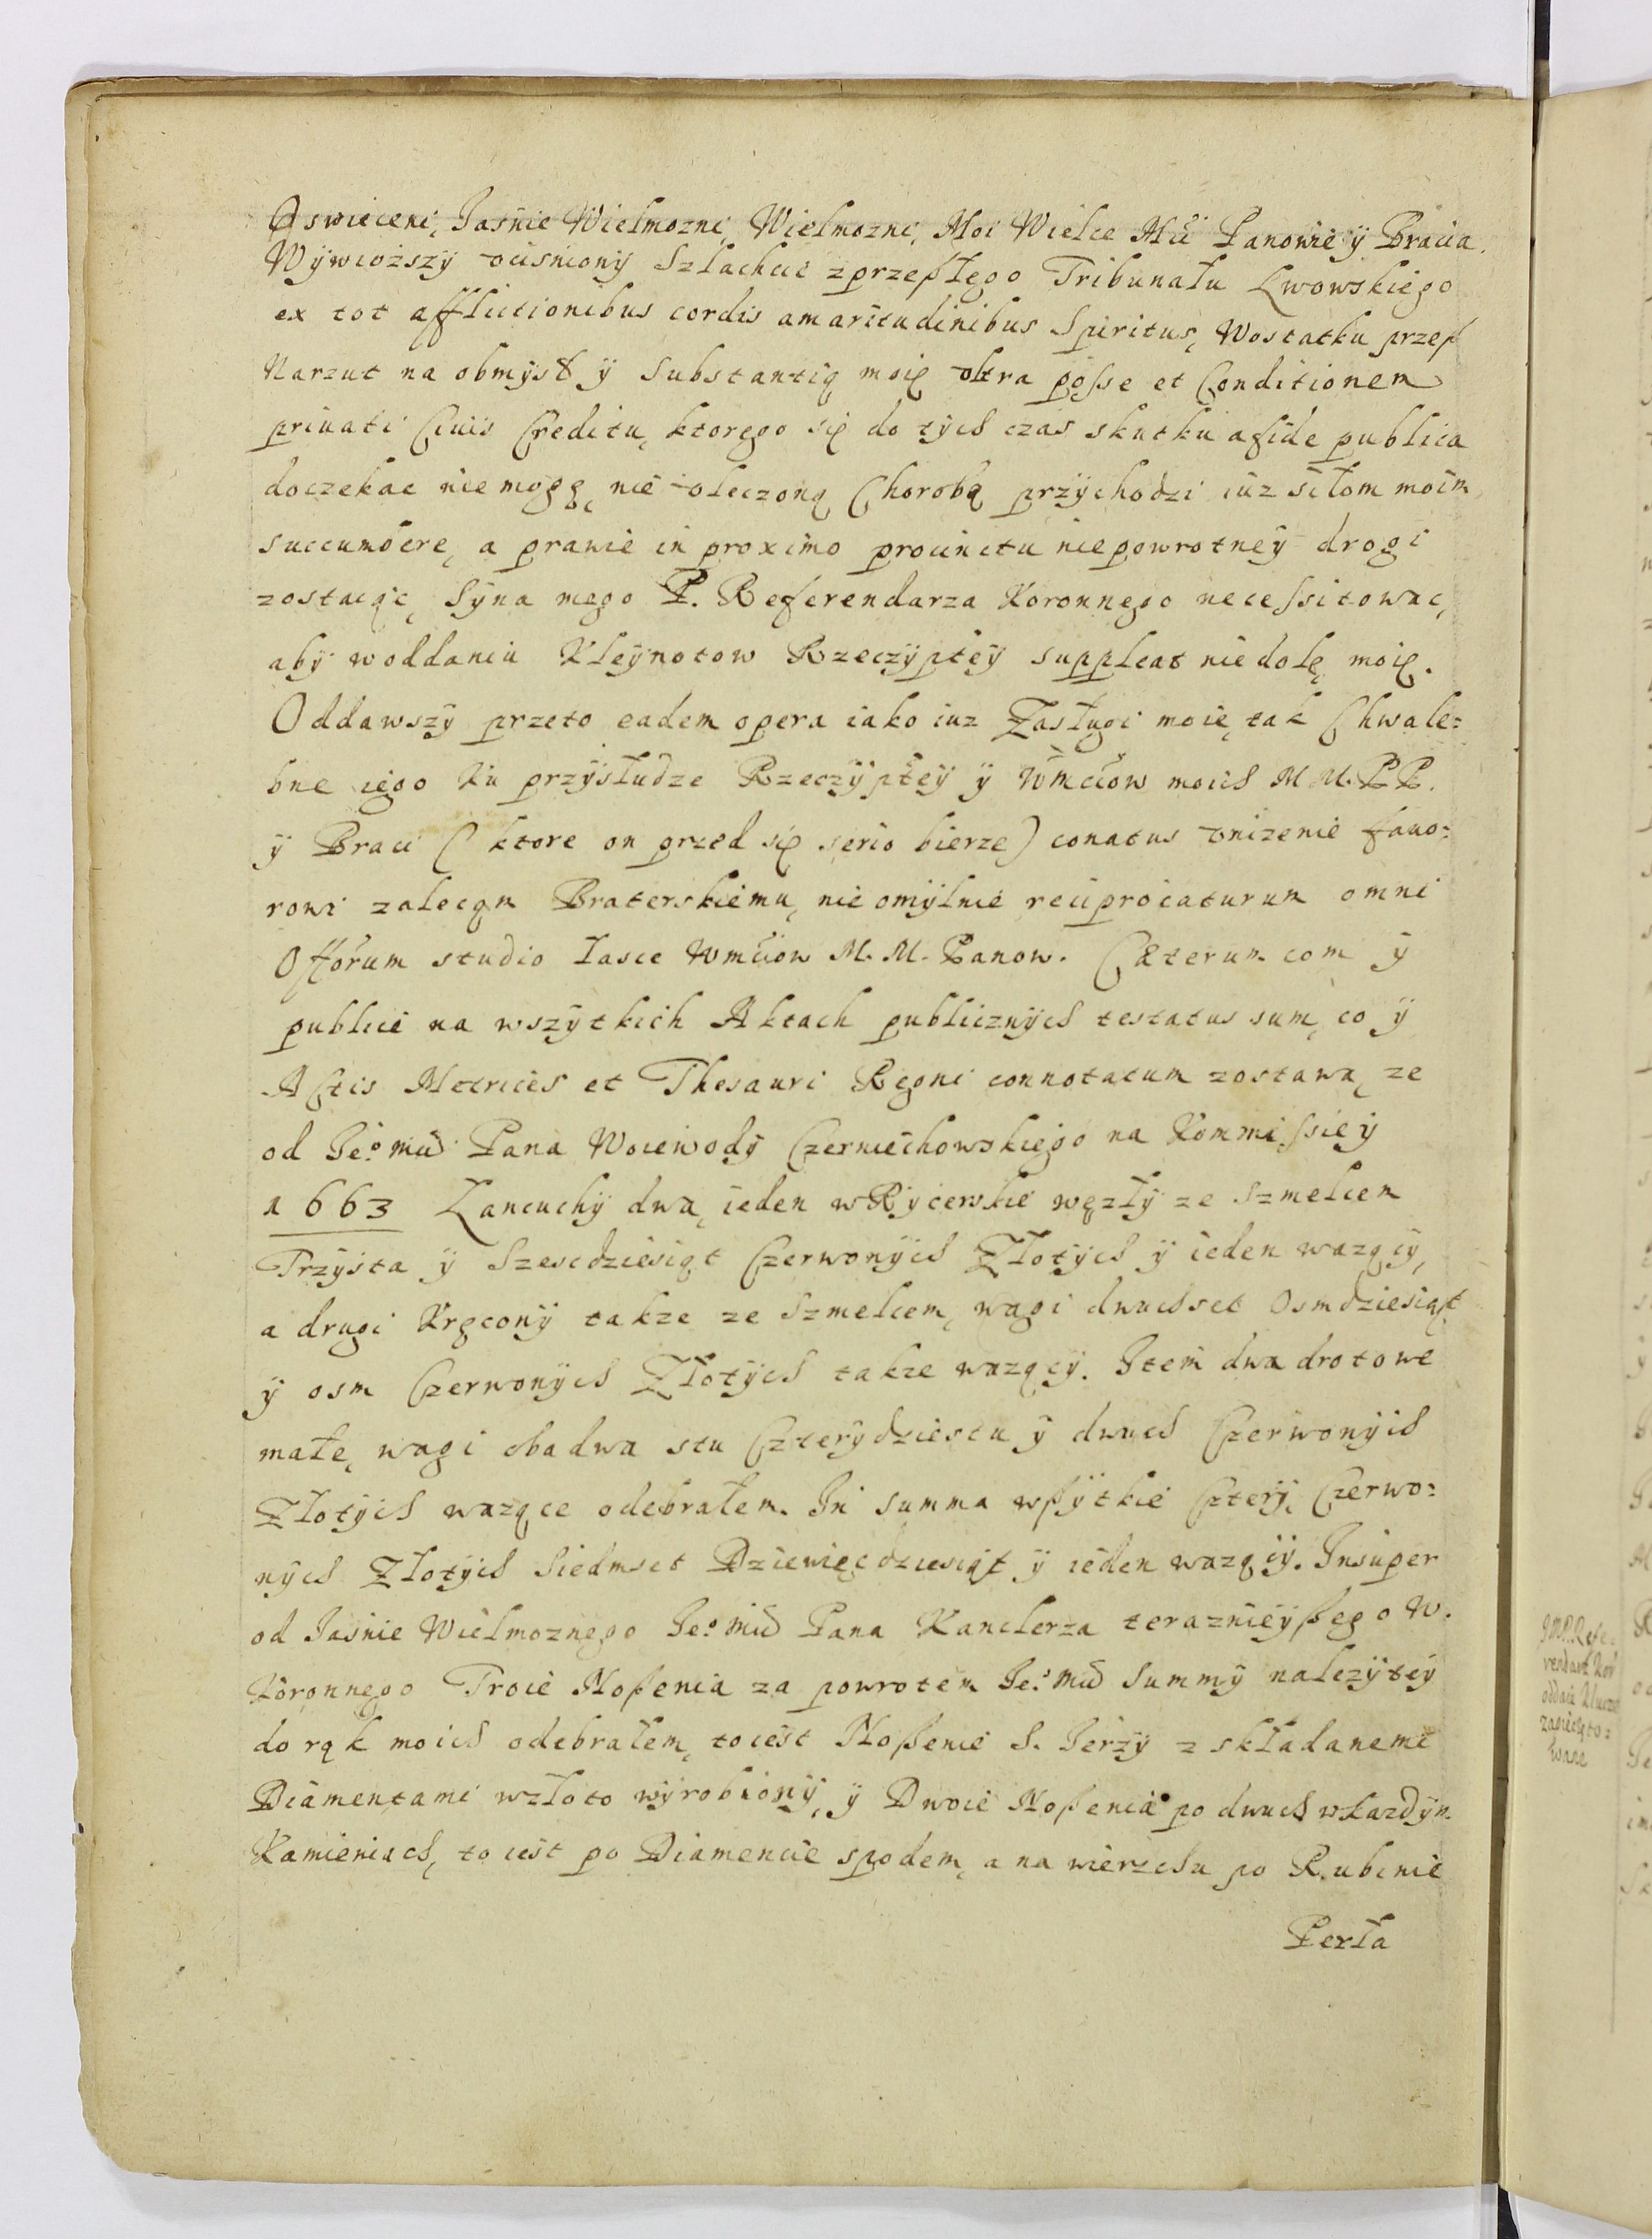 Oswieceni, Jaśnie Wielmozni, Wielmozni, Moi Wielce Mći Panowie ÿ Bracia.
Wÿwiozszÿ vciśnionÿ Szlachcic z przeszłego Tribunału Lwowskiego
ex tot afflictionibus cordis amaritudinibus Spiritus, wostatku przesz
Narzut na obmysł ÿ Substantią moię vltra posse et Conditionem
priuati Ciuis Creditu, ktorego się do tÿch czas skutku a fide publica
doczekac nie mogę, nie vleczoną Chorobą przÿchodzi iuz siłom moim
succumbere, a prawie in proximo procinctu niepowrotneÿ drogi
zostaiąc, Sÿna mego P. Referendarza Koronnego necessitowac,
abÿ w oddaniu Kleÿnotow Rzeczÿpteÿ suppleat niedolę moię.
Oddawszÿ przeto eadem opera iako iuz Zasługi moie, tak Chwale=
bne iego Ku przÿsłudze Rzeczÿpteÿ ÿ Wmciow moich M M. P P.
ÿ Braci (ktore on przed się serio bierze) conatus vnizenie fauo=
rowi zalecam Braterskiemu, nieomÿlnie reciprocaturum omni
Offorum studio łasce Wmciow M. M. Panow. Cæterum com ÿ
publice na wszÿtkich Aktach publicznÿch testatus sum, co ÿ
Actis Metrices et Thesauri Regni connotatum zostawa, ze
od Jeº Mci Pana Woiewodÿ Czerniechowskiego na Kommissieÿ
1663 Łancuchÿ dwa, ieden w Rÿcerskie węzłÿ ze Szmelcem
Trzÿsta ÿ Szescdziesiąt Czerwonÿch Złotÿch ÿ ieden wazącÿ,
a drugi Kręconÿ takze ze Szmelcem, wagi dwuchset Osmdziesiąt
ÿ osm Czerwonÿch Złotÿch takze wazącÿ. Item dwa drotowe
małe, wagi obadwa stu Czterÿdziestu ÿ dwuch Czerwonÿch
Złotÿch wazące odebrałem. In summa wszÿtkie Czterÿ, Czerwo=
nÿch Złotÿch Siedmset Dziewięcdziesiąt ÿ ieden wazącÿ. Insuper
od Jaśnie Wielmoznego Jeº Mci Pana Kanclerza teraznieÿszego W.
Koronnego Troie Noszenia za powrotem Jeº Mci Summÿ nalezÿteÿ
do rąk moich odebrałem, to iest Noszenie S. Jerzÿ z składanemi
Diamentami w złoto wÿrobionÿ, ÿ Dwoie Noszenia po dwuch w kazdÿm
Kamieniach, to iest po Diamencie spodem, a na wierzchu po Rubinie
Perła
J M P. Refe=
rendarz Kor
oddaie Klucze
zapieczęto=
wane